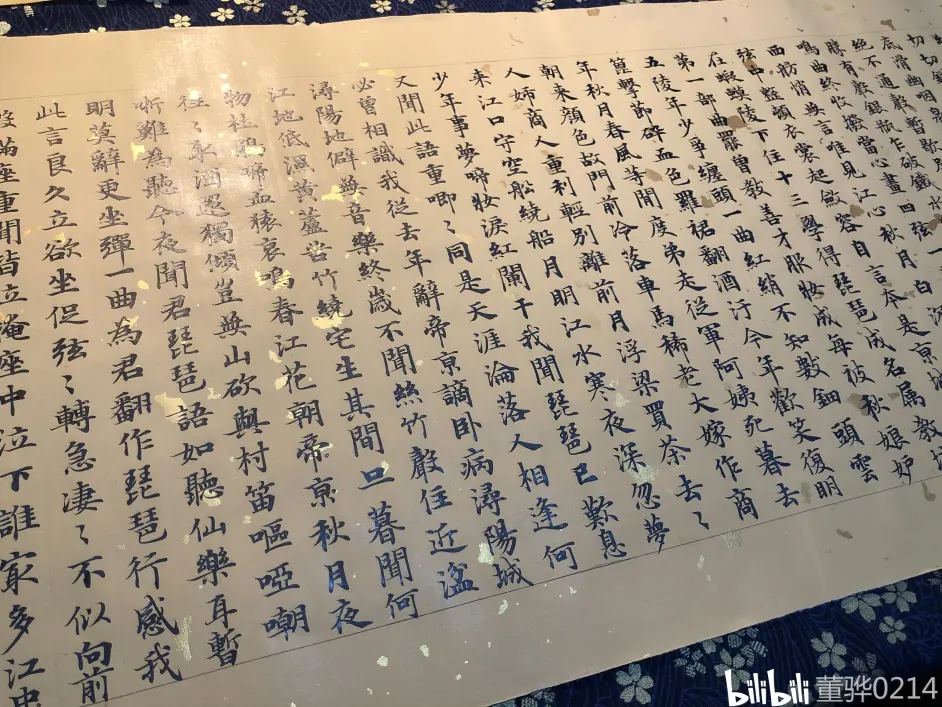 鳴曲終收撥當心畫四弦一
舫悄無言唯見江心秋月白
弦中整頓衣裳起斂容自言本是京城
在蝦蟆陵下住十三學得琵琶成名屬教坊
第一部曲罷曾教善才服妝成每被秋娘妒
五陵年少爭纏頭一曲紅綃不知數鈿頭雲
篦擊節碎血色羅裙翻酒汙今年歡笑復明
年秋月春風等閒度弟走從軍阿姨死暮去
朝來顏色故門前冷落車馬稀老大嫁作商
人婦商人重利輕別離前月浮梁買茶去〻
來江口守空船繞船月明江水寒夜深忽夢
少年事夢啼妝淚紅闌干我聞琵琶已歎息
又聞此語重唧〻同是天涯淪落人相逢何
必曾相識我從去年辭帝京謫卧病潯陽城
潯陽地僻無音樂終歲不聞絲竹聲住近湓
江地低濕黃蘆苦竹繞宅生其間旦暮聞何
物杜鵑啼血猿哀鳴春江花朝帝京秋月夜
往〻取酒還獨傾豈無山歌與村笛嘔啞嘲
哳難為聽今夜聞君琵琶語如聽仙樂耳暫
明莫辭更坐彈一曲為君翻作琵琶行感我
此言良久立欲坐促弦〻轉急凄〻不似向前
滿座重聞皆立淹座中泣下誰家多江
bilibili 董骅0214